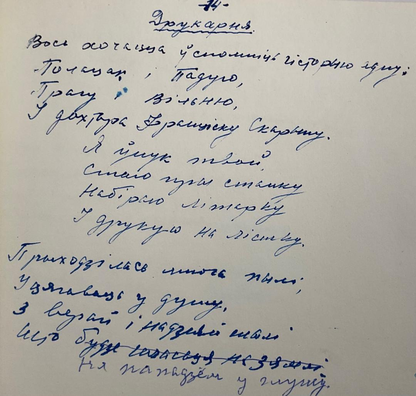 -14-
Друкарня.
Вось хочацца ўспомніць гісторыю адну:
Полацак і Падую,
Прагу і Вільню,
І доктара Францішку Скарыну.
Я ўнук твой,
Стаю пры станку
Набіраю літерку
І друкую на лістку.
Прыходзілась многа пылі,
Уцягваць у душу,
З верай і надзеяй
Што будзе на зямлі
Не пападзём у глушу.